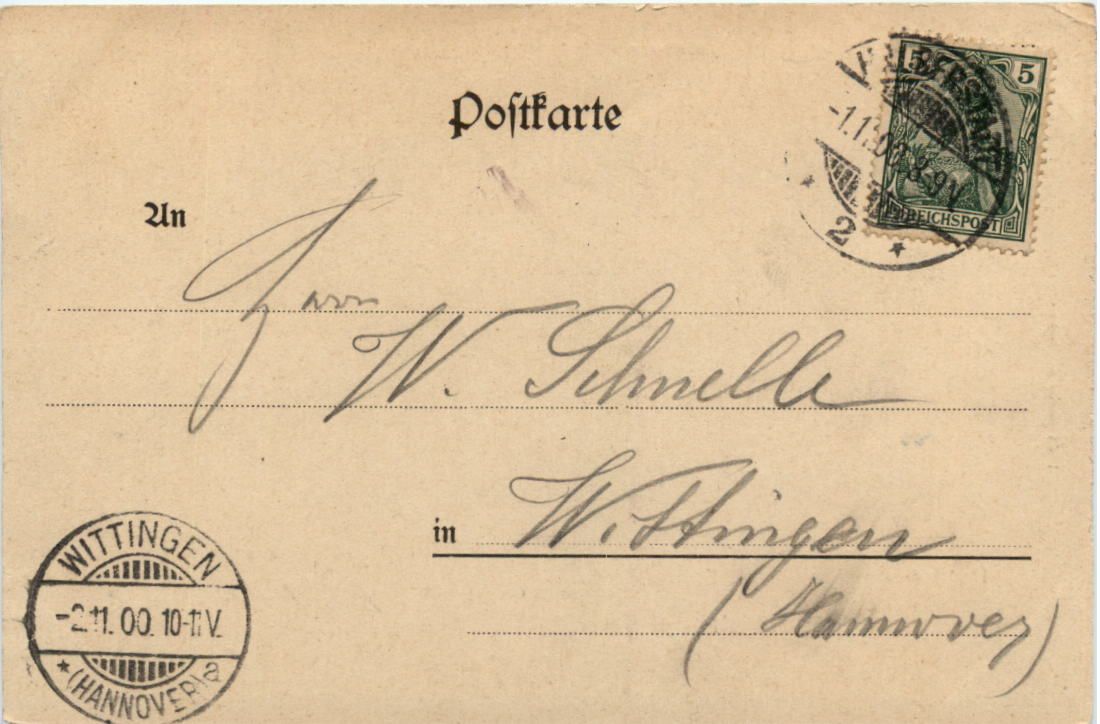 Postkarte
HALBERSTADT
5 5
-1.11.00. 8-9V.
REICHSPOST
2
An
Herrn
W. Schnelle
in Wittingen
(Hannover)
WITTINGEN
-2.11.00. 10-11V.
* (HANNOVER) a